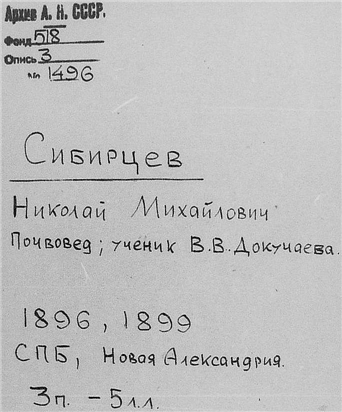 Архив А. Н. СССР.
Фонд 518
Опись 3
№ 1496
Сибирцев
Николай Михайлович
Почвовед; ученик В.В.Докучаева.
1896, 1899
СПБ, Новая Александрия.
3п. – 5л.л.